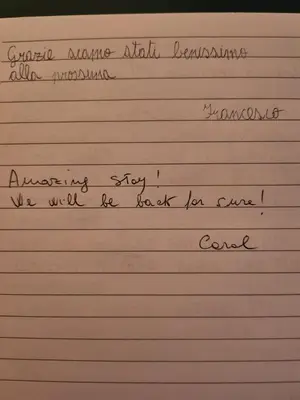 Grazie siamo stati benissimo
alla prossima
Francesco
Amazing stay!
We will be back for sure!
Carol